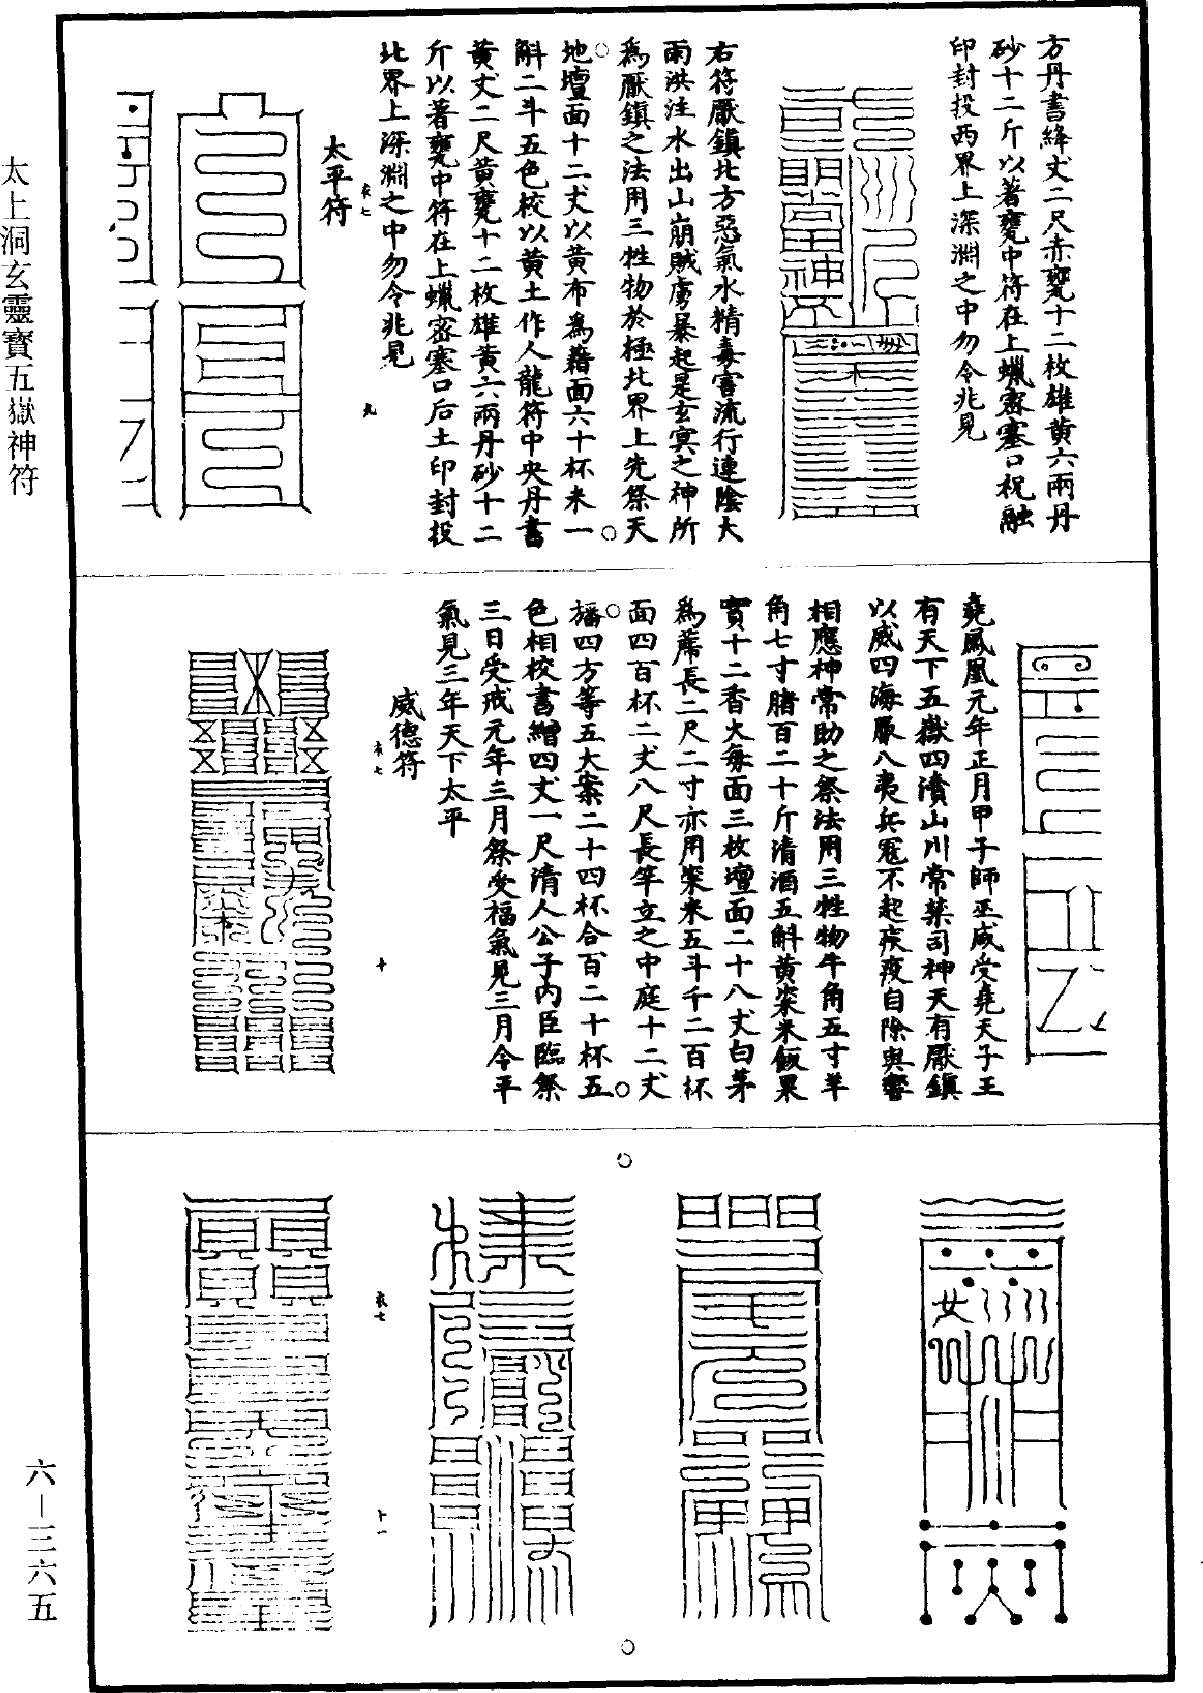 方丹書絳丈二尺赤甕十二枚雄黄六兩丹
砂十二斤以著甕中符在上蠟密塞口祝融
印封投西界上深淵之中勿令兆見
右符厭鎮北方惡氣水精毒害流行連陰大
雨洪注水出山崩賊虜暴起是玄冥之神所
為厭鎮之法用三牲物於極北界上先祭天
地壇面十二丈以黄布為藉面六十杯米一
斛二斗五色校以黄土作人龍符中央丹書
黄丈二尺黄甕十二枚雄黄六兩丹砂十二
斤以著甕中符在上蠟密塞口后土印封投
北界上深淵之中勿令兆見
衣七
九
太平符
堯鳳凰元年正月甲子師巫咸受堯天子王
有天下五嶽四瀆山川常禁司神天有厭鎮
以威四海賑八夷兵冦不起疾疫自除與響
相應神常助之祭法用三牲物牛角五寸羊
角七寸腊百二十斤清酒五斛黄粢米飯果
實十二香火每面三枚壇面二十八丈白茅
為蓆長二尺二寸亦用粢米五斗千二百杯
面四百杯二丈八尺長竿立之中庭十二丈
旛四方等五大案二十四杯合百二十杯五
色相校書繒四丈一尺清人公子内臣臨祭
三日受戒元年三月祭受福氣見三月令平
氣見三年天下太平
衣七
十
威德符
衣七
十一
太上洞玄靈寶五嶽神符
六—三六五